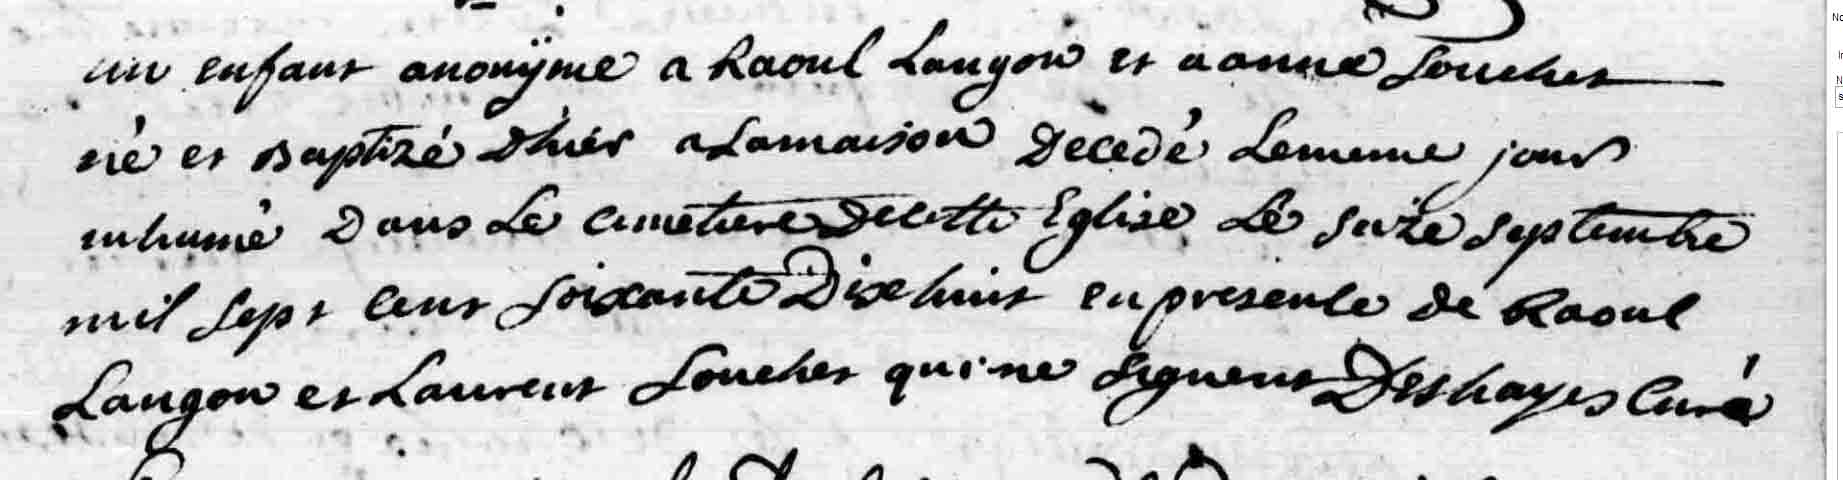 un enfant anonÿme a Raoul Langon et a anne Louchet
né et Baptizé d'hièr a Lamaison Decedé Lememe jour
inhumé Dans Le cimetiere Decette Eglise Le seize septembre
mil sept cent soixante Dixehuit en presence de Raoul
Langon et Laurent Louchet qui ne signent Deshayes Curé